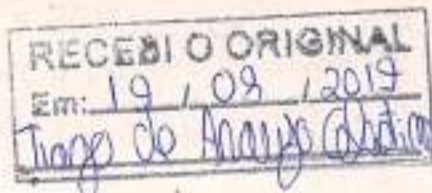 RECEBI O ORIGINAL
Em: 19 / 09 / 2019
Tiago de Araujo